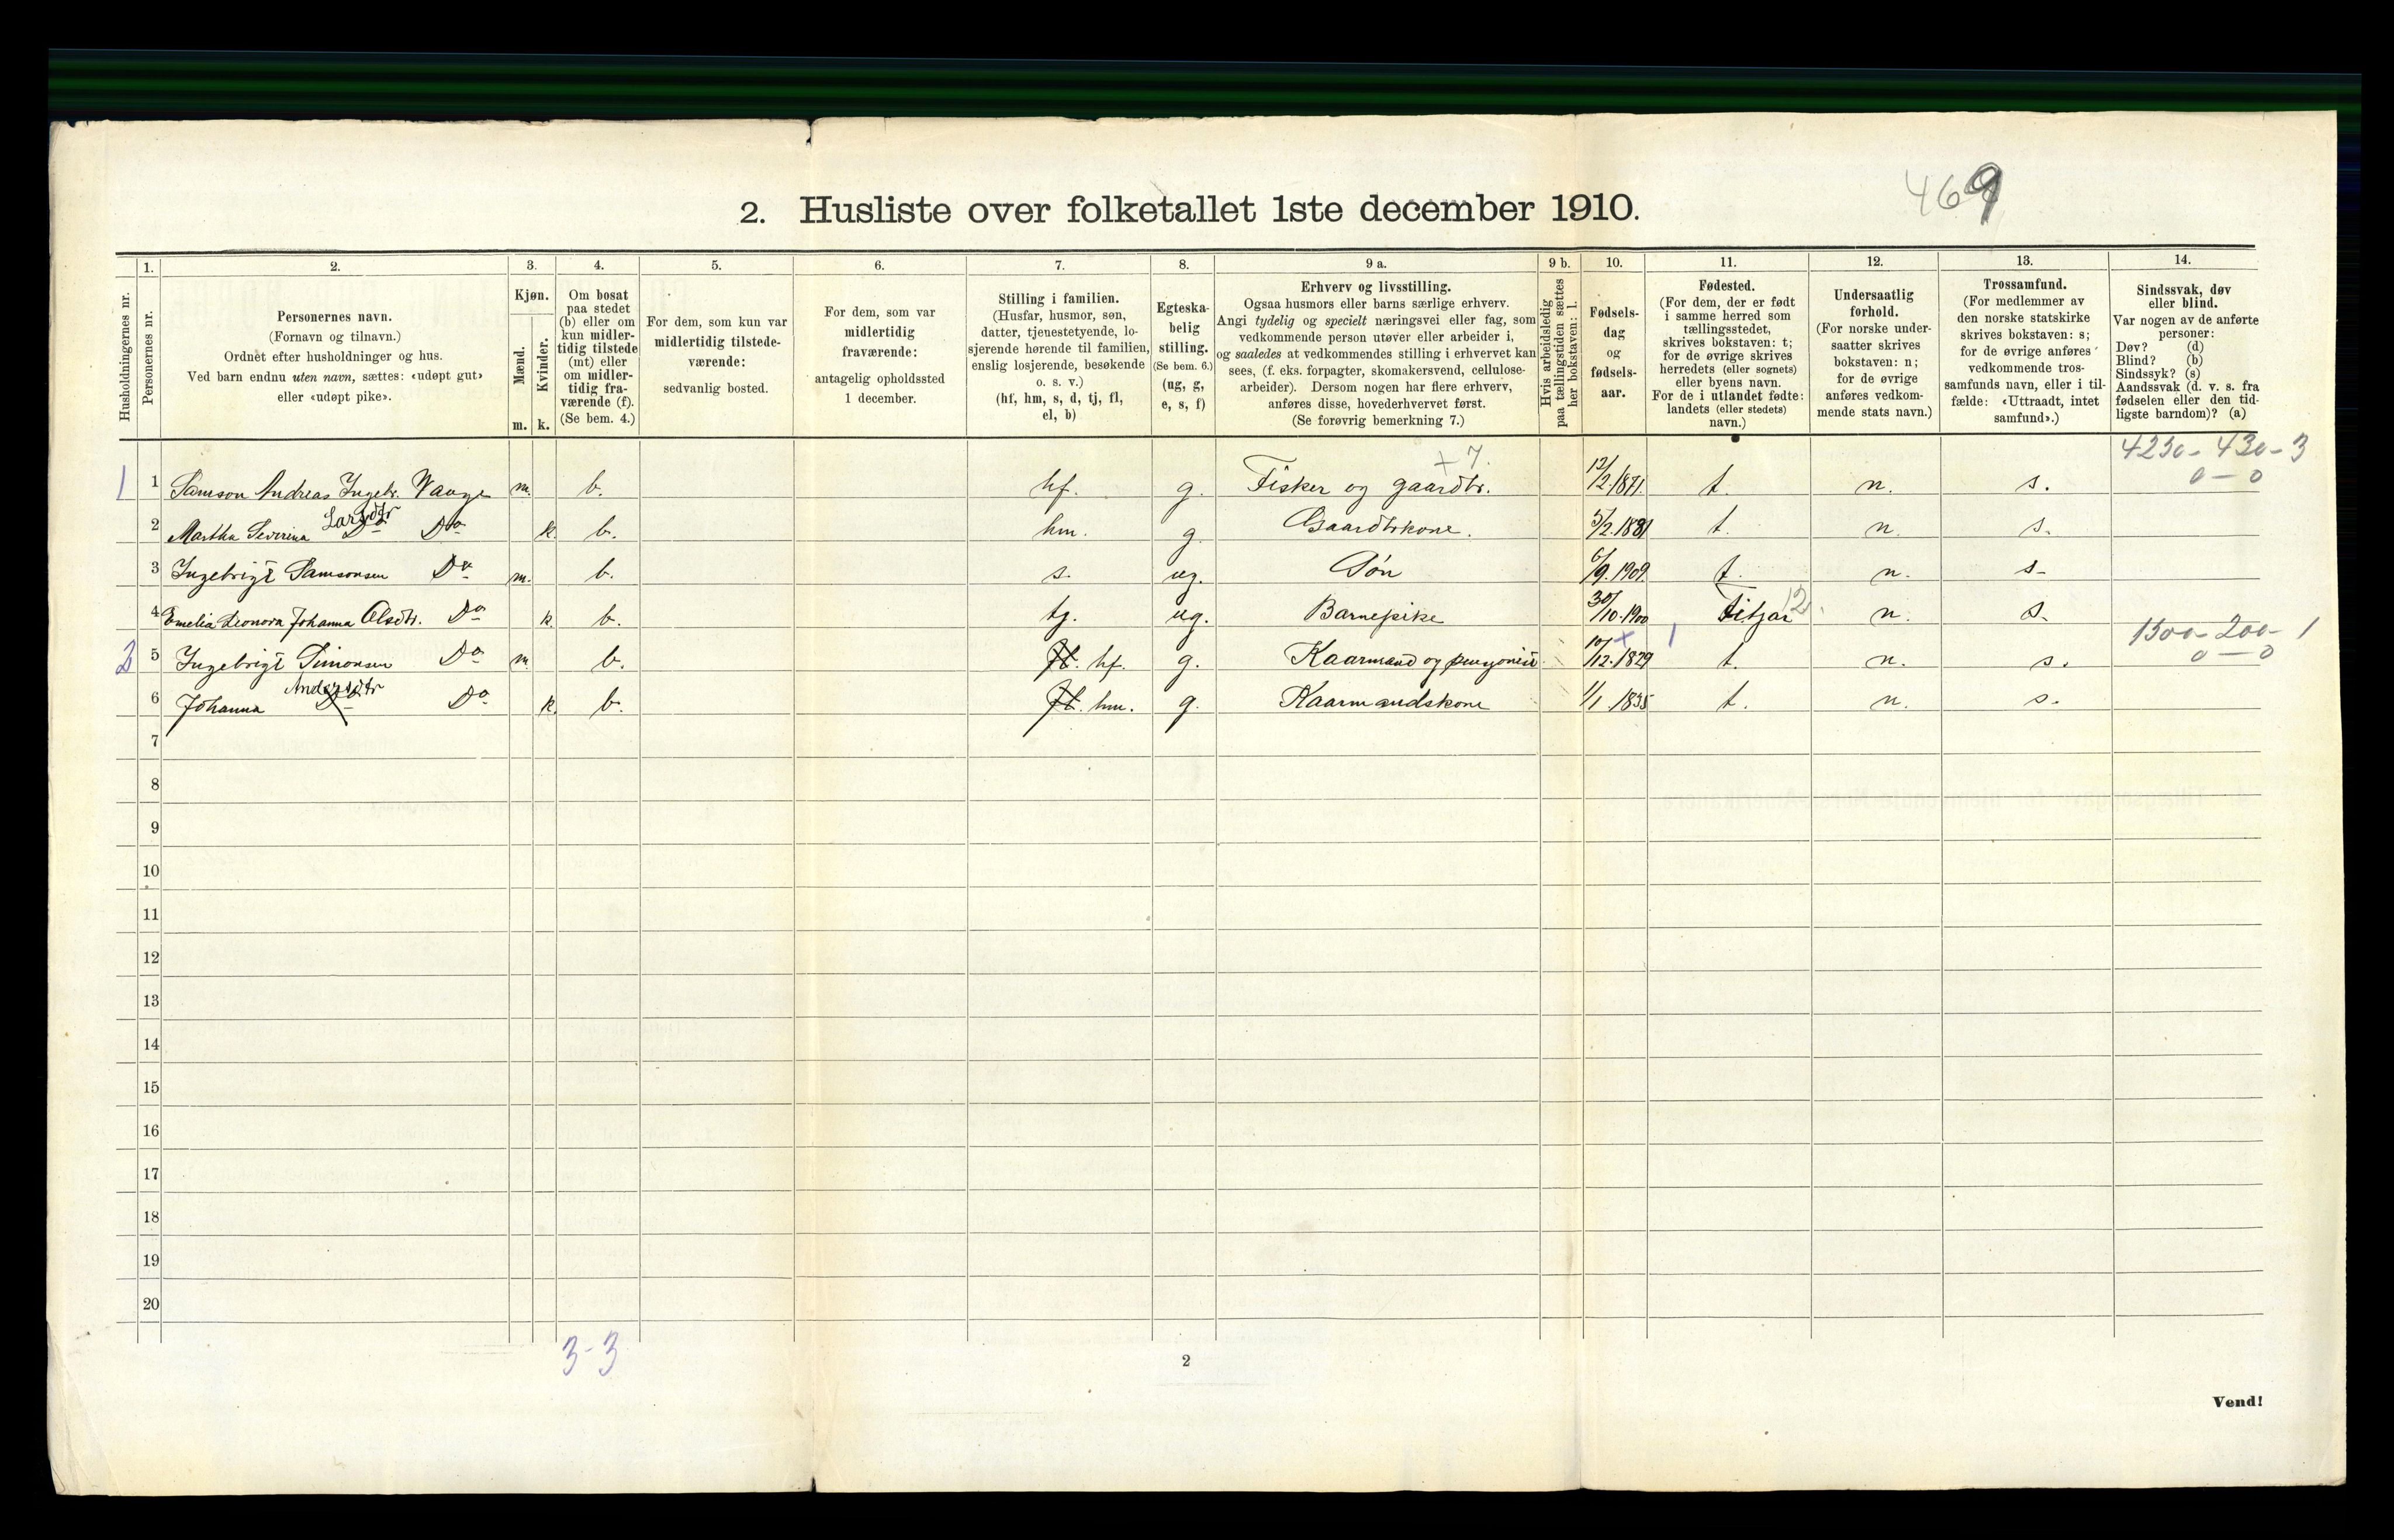 469
2. Husliste over folketallet 1ste december 1910.
Husholdningernes nr.
1.
Personernes nr.
2.
Personernes navn.
(Fornavn og tilnavn.)
Ordnet efter husholdninger og hus.
Ved barn endnu uten navn, sættes: «udøpt gut»
eller «udøpt pike».
3.
Kjøn.
Mænd.
Kvinder.
m. k.
4.
Om bosat
paa stedet
(b) eller om
kun midler-
tidig tilstede
(mt) eller
om midler-
tidig fra-
værende (f).
(Se bem. 4.)
5.
For dem, som kun var
midlertidig tilstede-
værende:
sedvanlig bosted.
6.
For dem, som var
midlertidig
fraværende:
antagelig opholdssted
1 december.
7.
Stilling i familien.
(Husfar, husmor, søn,
datter, tjenestetyende, lo-
sjerende hørende til familien,
enslig losjerende, besøkende
o. s. v.)
(hf, hm, s, d, tj, fl,
el, b)
8.
Egteska-
belig
stilling.
(Se bem. 6.)
(ug, g,
e, s, f)
9 a.
Erhverv og livsstilling.
Ogsaa husmors eller barns særlige erhverv.
Angi tydelig og specielt næringsvei eller fag, som
vedkommende person utøver eller arbeider i,
og saaledes at vedkommendes stilling i erhvervet kan
sees, (f. eks. forpagter, skomakersvend, cellulose-
arbeider). Dersom nogen har flere erhverv,
anføres disse, hovederhvervet først.
(Se forøvrig bemerkning 7.)
9 b.
Hvis arbeidsledig
paa tællingstiden sættes
her bokstaven: l.
10.
Fødsels-
dag
og
fødsels-
aar.
11.
Fødested.
(For dem, der er født
i samme herred som
tællingsstedet,
skrives bokstaven: t;
for de øvrige skrives
herredets (eller sognets)
eller byens navn.
For de i utlandet fødte:
landets (eller stedets)
navn.)
12.
Undersaatlig
forhold.
(For norske under-
saatter skrives
bokstaven: n;
for de øvrige
anføres vedkom-
mende stats navn.)
13.
Trossamfund.
(For medlemmer av
den norske statskirke
skrives bokstaven: s;
for de øvrige anføres
vedkommende tros-
samfunds navn, eller i til-
fælde: «Uttraadt, intet
samfund».)
14.
Sindssvak, døv
eller blind.
Var nogen av de anførte
personer:
Døv? (d)
Blind? (b)
Sindssyk? (s)
Aandssvak (d. v. s. fra
fødselen eller den tid-
ligste barndom)? (a)
+ 7. 4230 - 430 - 3
1 1 Samson Andreas Ingebr. Vange m. b. hf. g. Fisker og gaardbr. 12/2.1871. t. n. s. 0 - 0
2 Martha Severina Larsdtr Do Do k. b. hm. g. Gaardbrkone. 5/2.1881 t. n. s.
3 Ingebrigt Samsonsen Do m. b. s. ug. Søn 6/9.1909. t. n. s.
4 Emelia Leonora Johanna Olsdtr. Do k. b. tj. ug. Barnepike 30/10.1900 Fitjar 12. n. s.
1500 - 200 - 1
2 5 Ingebrigt Simonsen Do m. b. fl. hf. g. Kaarmand og pensjonist 10/12.1829 + 1 t. n. s. 0 - 0
6 Johanna Andersdtr Do Do k. b. fl. hm. g. Kaarmandskone 1/1 1835 t. n. s.
7
8
9
10
11
12
13
14
15
16
17
18
19
20
3-3
2
Vend!